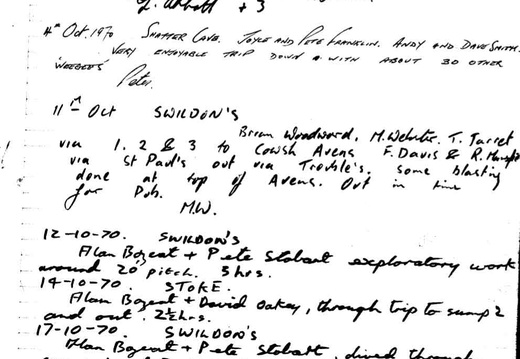 + 3
4th Oct. 1970 SHATTER CAVE. JOYCE AND PETE FRANKLIN. ANDY AND DAVE SMITH.
VERY ENJOYABLE TRIP DOWN WITH ABOUT 30 OTHER
'WEEGEES'
Peter.
11th Oct SWILDON'S
Brian Woodward, M. Webster. T. Jarret
via 1. 2 & 3 to Cowsh Avens F. Davis & R.
via St Paul's out via Trouble's. some blasting
done at top of Avens. Out in time
for Pub.
M.W.
12-10-70. SWILDON'S
Alan Bozeat + Pete Stobart exploratory work
around 20' pitch. 5 hrs.
14-10-70. STOKE.
Alan Bozeat + David Oakey, through trip to sump 2
and out. 2½ hrs.
17-10-70. SWILDON'S
Alan Bozeat + Pete Stobart, dived through